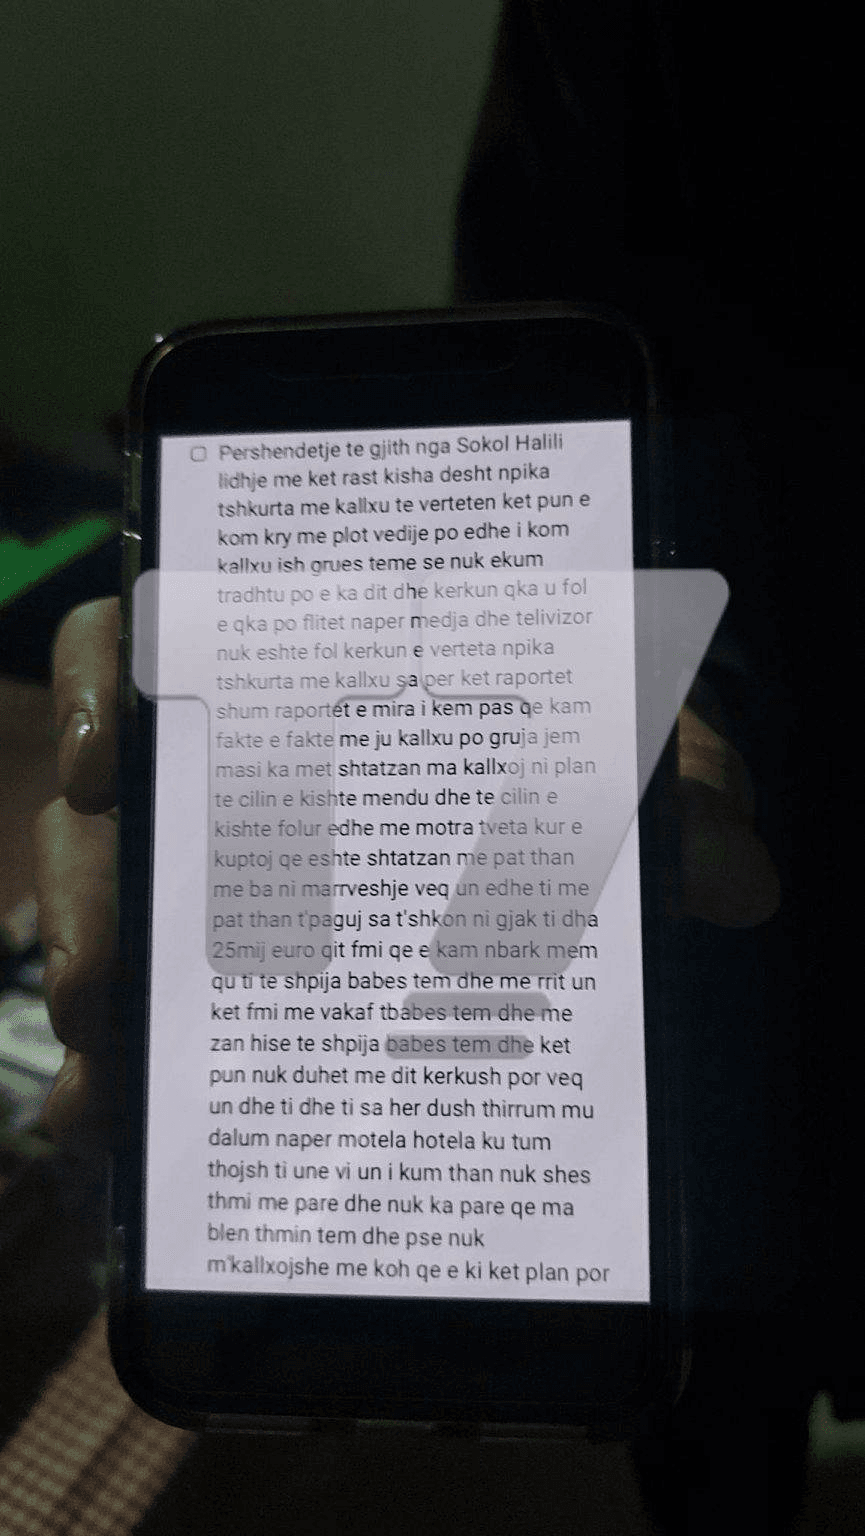 Pershendetje te gjith nga Sokol Halili
lidhje me ket rast kisha desht npika
tshkurta me kallxu te verteten ket pun e
kom kry me plot vedije po edhe i kom
kallxu ish grues teme se nuk ekum
tradhtu po e ka dit dhe kerkun qka u fol
e qka po flitet naper medja dhe telivizor
nuk eshte fol kerkun e verteta npika
tshkurta me kallxu sa per ket raportet
shum raportet e mira i kem pas qe kam
fakte e fakte me ju kallxu po gruja jem
masi ka met shtatzan ma kallxoj ni plan
te cilin e kishte mendu dhe te cilin e
kishte folur edhe me motra tveta kur e
kuptoj qe eshte shtatzan me pat than
me ba ni marrveshje veq un edhe ti me
pat than t'paguj sa t'shkon ni gjak ti dha
25mij euro qit fmi qe e kam nbark mem
qu ti te shpija babes tem dhe me rrit un
ket fmi me vakaf tbabes tem dhe me
zan hise te shpija babes tem dhe ket
pun nuk duhet me dit kerkush por veq
un dhe ti dhe ti sa her dush thirrum mu
dalum naper motela hotela ku tum
thojsh ti une vi un i kum than nuk shes
thmi me pare dhe nuk ka pare qe ma
blen thmin tem dhe pse nuk
m'kallxojshe me koh qe e ki ket plan por